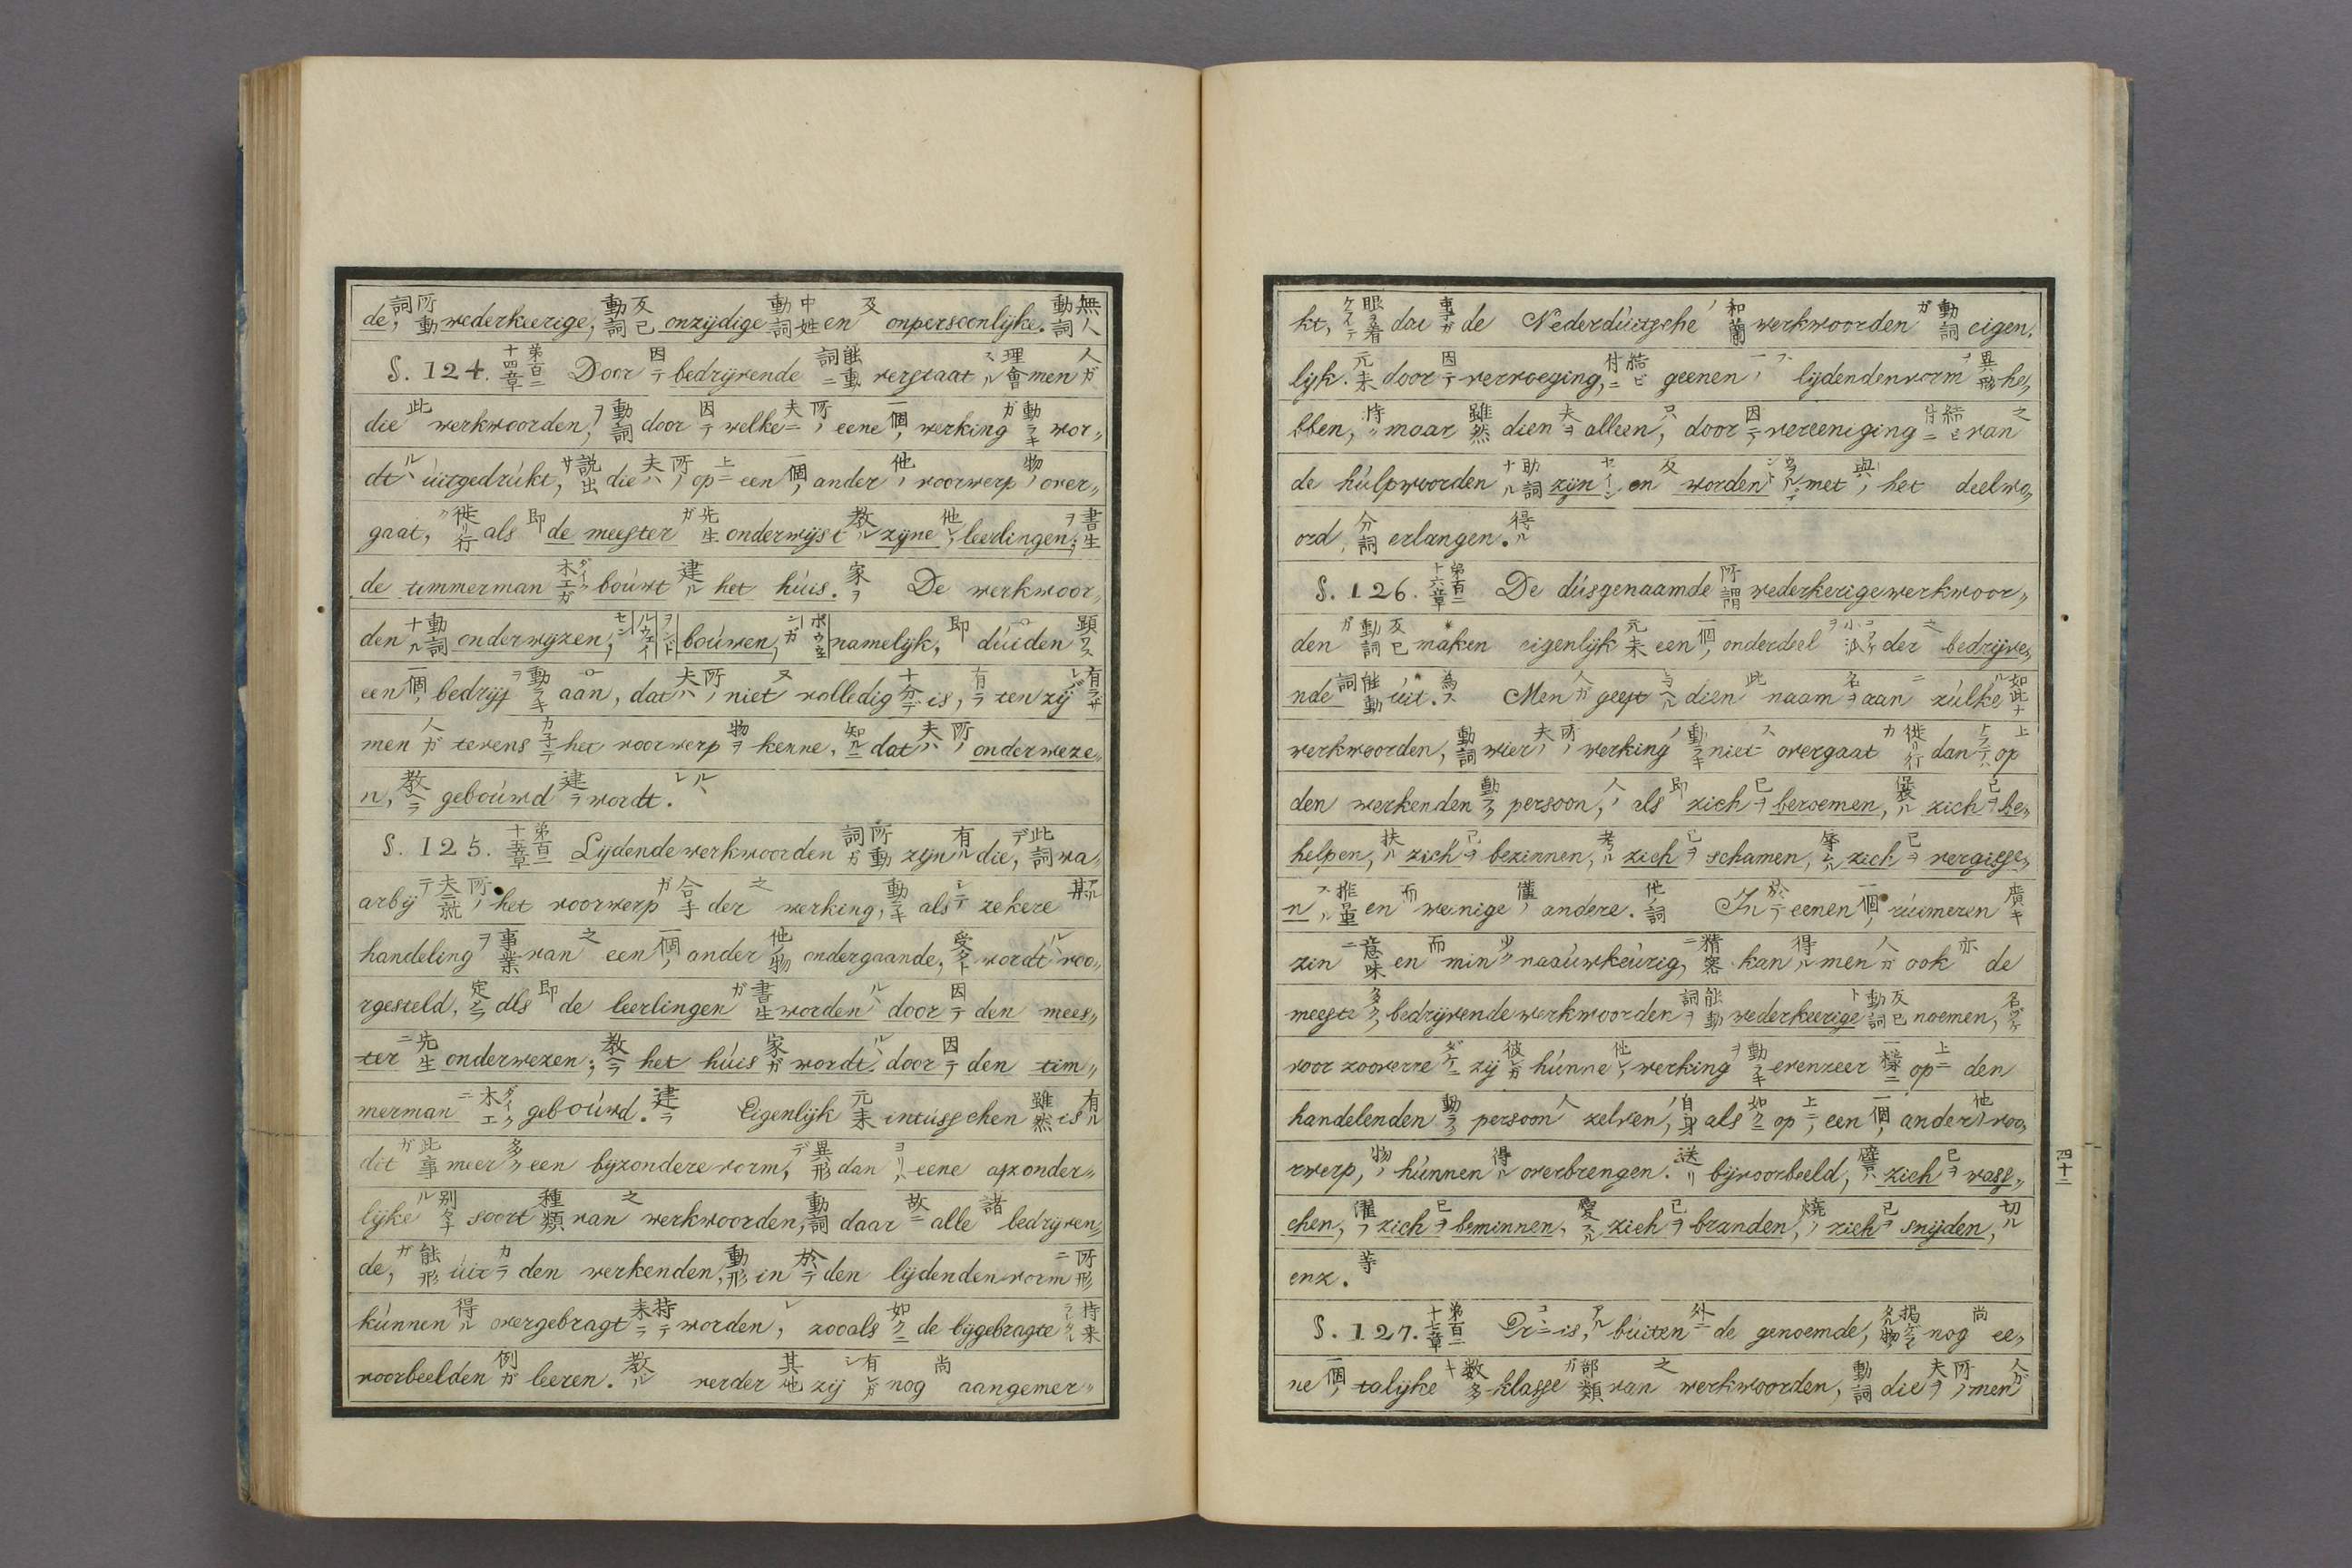 de, 所動詞 wederkeerige, 反己動詞 onzijdige 中性動詞 en 及 onpersoonlijke. 無人動詞
§. 124. 第百二十四章 Door 因テ bedrijvende 能動詞ニ verstaat 理會スル men 人ガ
die 此 werkwoorden, 動詞ヲ door 因テ welke 夫ニ 所ノ eene 一個ノ werking 動ラキガ wor〃
dt ル úitgedrúkt, 説出サ die 夫ハ 所ノ op 上ニ een 一個ノ ander 他ノ voorwerp 物ノ over〃
gaat, 徙リ行ク als 即 de meester 先生ガ onderwijst 教ル zijne 他レノ leerlingen; 書生ヲ
de timmerman 木工ガ boúwt 建ル het húis. 家ヲ De werkwoor〃
den 動詞ナル onderwijzen, ヲンドルウェイセン boúwen, ボウヱンガ namelijk, 即 dúiden 顕ス
een 一個ノ bedrijf 動ラキヲ aan, dat 夫ハ 所ノ niet ヌ volledig 十分デ is, 有ラ ten zij 有ラザレバ
men 人ガ tevens カ子テ het voorwerp 物ヲ kenne, 知ルニ dat 夫ハ 所ノ onderweze〃
n, 教ヘラ geboúwd 建ラ wordt. ルヽ
§. 125. 第百二十五章 Lijdende werkwoorden 所動詞ガ zijn 有ル die, 此詞デ wa〃
arbij 夫ニ就テ 所ノ het voorwerp 合手ガ der 之 werking, 動ラキ als シテ zekere 某ル
handeling 事業ヲ van 之 een 一個ノ ander 他ノ物 ondergaande, 受クト wordt ルヽ voo〃
rgesteld, 定メラ dls 即 de leerlingen 書生ガ worden ルヽ door 因テ den mees〃
ter 先生ニ onderwezen; 教ヘラ het húis 家ガ wordt ルヽ door 因テ den tim〃
merman 木工ニ geboúwd. 建ラ Eigenlijk 元来 intússchen 雖然 is 有ル
dit 此事ガ meer 多ク een bijzondere vorm, 異形デ dan ヨリハ eene afzonder〃
lijke 別々ナル soort 種類 van 之 werkwoorden, 動詞 daar 故ニ alle 諸 bedrijven〃
de, 能形ガ úit カラ den werkenden, 動形 in 於テ den lijdenden vorm 所形ニ
kúnnen 得ル overgebragt 持テ来ラ worden, レ zooals 如クニ de bijgebragte 持来
voorbeelden 例ガ leeren. 教ル verder 其他 zij 有レガシ nog 尚 aangemer〃
kt, 眼ヲ着 dat 事ガ de Nederdúitsche 和蘭ノ werkwoorden 動詞ガ eigen.
lijk. 元来 door 因テ vervoeging, 結ビ付ニ geenen lijdenden vorm 異形ヲ he〃
bben, 持 maar 雖然 dien 夫ヲ alleen, 只 door 因テ vereeniging 結ビ付ニ van 之
de húlpwoorden 助詞ナル zijn セイン en 及 worden met 與ノ het deelwo〃
ord, 分詞 erlangen. 得ル
§. 126. 第百二十六章 De dúsgenaamde 所謂 wederkerige werkwoor〃
den 反己動詞ガ maken eigenlijk 元来 een 一個ノ onderdeel der 之 bedrijve〃
nde 能動詞 úit. 為ス Men 人ガ geeft 与ヘル dien 此 naam 名ヲ aan ニ zúlke 如此ナル
werkwoorden, 動詞 wier 夫ハ 所ノ werking 動ラキノ niet ス overgaat 徙リ行カ dan op 上
den werkenden 動ラク persoon, 人ノ als 即 zich 已ヲ beroemen, zich 已ヲ be〃
helpen, 扶ル zich 已ヲ bezinnen, 考ル zich 已ヲ schamen, 辱ムル zich 已ヲ vergisse〃
n, en 而 weinige 僅ノ andere. 他ノ詞 In 於テ eenen 一個ノ rúimeren 廣キ
zin 意味ニ en 而 min 少〃 naaúwkeúrig, 精密ニ kan 得ル men 人ガ ook 亦 de
meeste 多クノ bedrijvende werkwoorden 能動詞ヲ wederkeerige 反己動詞ト noemen, 名ヅケ
voor zooverre ダケニ zij 彼レガ húnne 他レノ werking 動ラキヲ evenzeer 一様ニ op 上ニ den
handelenden 動ラク persoon 人 zelven, 自身ノ als 如クニ op 上ニ een 一個ノ ander 他ノ voo〃
rwerp, 物ノ kúnnen 得ル overbrengen. 送リ bijvoorbeeld, 譬ヘハ zich 已ヲ wass〃
chen, 濯フ zich 已ヲ beminnen, 愛スル zich 已ヲ branden, 焼ク zich 已ヲ snijden, 切ル
enz. 等
§. 127. 第百二十七章 Er コヽニ is, アル búiten 外ニ de genoemde, nog 尚 ee〃
ne 一個ノ talijke 数多キ klasse 部類ガ van 之 werkwoorden, 動詞 die 夫ヲ 所ノ men 人ガ
四十二